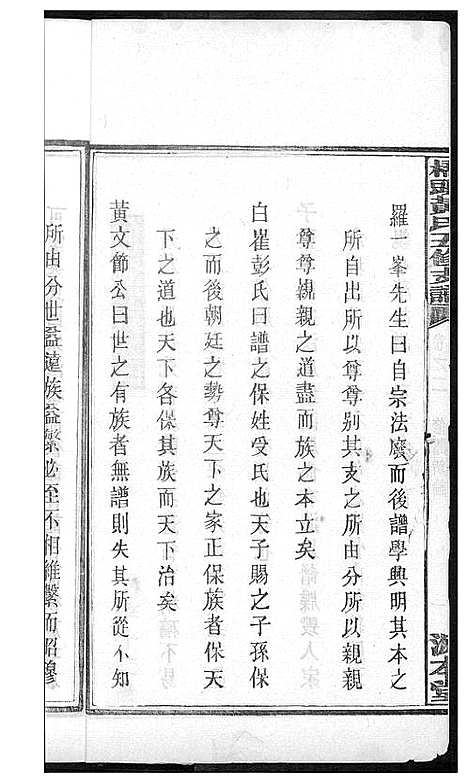 羅一峯先生曰自宗法廢而後譜學興明其本之
所自出所以尊尊别其支之所由分所以親親
尊尊親親之道盡而族之本立矣
白崔彭氏曰譜之保姓受氏也天子賜之子孫保
之而後朝廷之勢尊天下之家正保族者保天
下之道也天下各保其族而天下治矣
黃文節公曰世之有族者無譜則失其所從不知
所由分世益遠族益繁必至不相維繫而昭穆